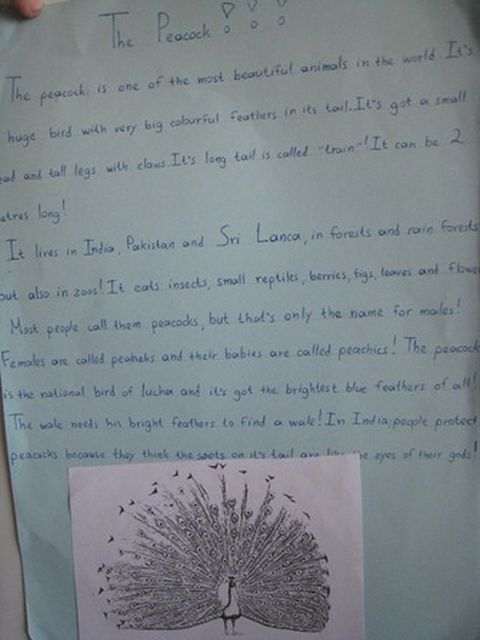 The Peacock!!!
The peacock is one of the most beautiful animals in the world. It's
huge bird with very big colourful feathers in its tail. It's got a small
ead and tall legs with claws. It's long tail is called "train"! It can be 2
etres long!
It lives in India, Pakistan and Sri Lanca, in forests and rain forests
but also in zoos! It eats insects, small reptiles, berries, figs, leaves and flowe
Most people call them peacocks, but that's only the name for males!
Females are called peahens and their babies are called peachics! The peacock
is the national bird of and it's got the brightest blue feathers of all!
The needs his bright feathers to find a In India people protect
peacocks because they think the spots on it's tail are eyes of their gods!